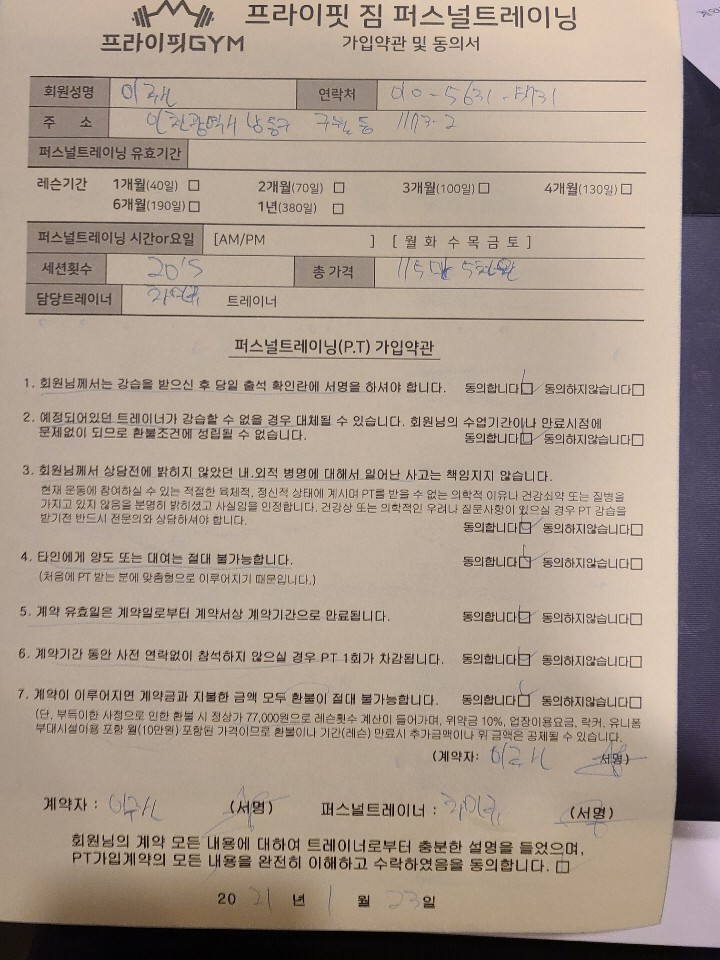 프라이핏 짐 퍼스널트레이닝
프라이핏GYM 가입약관 및 동의서
회원성명 연락처 010-5631-
주 소 인천광역시 남동구 구월동 1173-2
퍼스널트레이닝 유효기간
레슨기간 1개월(40일) □ 2개월(70일) □ 3개월(100일) □ 4개월(130일) □
6개월(190일) □ 1년(380일) □
퍼스널트레이닝 시간or요일 [AM/PM ] [ 월 화 수 목 금 토 ]
세션횟수 20's 총 가격 115만 5천원
담당트레이너 트레이너
퍼스널트레이닝(P.T) 가입약관
1. 회원님께서는 강습을 받으신 후 당일 출석 확인란에 서명을 하셔야 합니다. 동의합니다□ 동의하지않습니다□
2. 예정되어있던 트레이너가 강습할 수 없을 경우 대체될 수 있습니다. 회원님의 수업기간이나 만료시점에
문제없이 되므로 환불조건에 성립될 수 없습니다. 동의합니다□ 동의하지않습니다□
3. 회원님께서 상담전에 밝히지 않았던 내.외적 병명에 대해서 일어난 사고는 책임지지 않습니다.
현재 운동에 참여하실 수 있는 적절한 육체적, 정신적 상태에 계시며 PT를 받을 수 없는 의학적 이유나 건강쇠약 또는 질병을
가지고 있지 않음을 분명히 밝히셨고 사실임을 인정합니다. 건강상 또는 의학적인 우려나 질문사항이 있으실 경우 PT 강습을
받기전 반드시 전문의와 상담하셔야 합니다.
동의합니다□ 동의하지않습니다□
4. 타인에게 양도 또는 대여는 절대 불가능합니다. 동의합니다□ 동의하지않습니다□
(처음에 PT 받는 분에 맞춤형으로 이루어지기 때문입니다.)
5. 계약 유효일은 계약일로부터 계약서상 계약기간으로 만료됩니다. 동의합니다□ 동의하지않습니다□
6. 계약기간 동안 사전 연락없이 참석하지 않으실 경우 PT 1회가 차감됩니다. 동의합니다□ 동의하지않습니다□
7. 계약이 이루어지면 계약금과 지불한 금액 모두 환불이 절대 불가능합니다. 동의합니다□ 동의하지않습니다□
(단, 부득이한 사정으로 인한 환불 시 정상가 77,000원으로 레슨횟수 계산이 들어가며, 위약금 10%, 업장이용요금, 락커, 유니폼
부대시설이용 포함 월(10만원) 포함된 가격이므로 환불이나 기간(레슨) 만료시 추가금액이나 위 금액은 공제될 수 있습니다.
(계약자: 서명)
계약자 : (서명) 퍼스널트레이너 : (서명)
회원님의 계약 모든 내용에 대하여 트레이너로부터 충분한 설명을 들었으며,
PT가입계약의 모든 내용을 완전히 이해하고 수락하였음을 동의합니다. □
20 21 년 1 월 23일